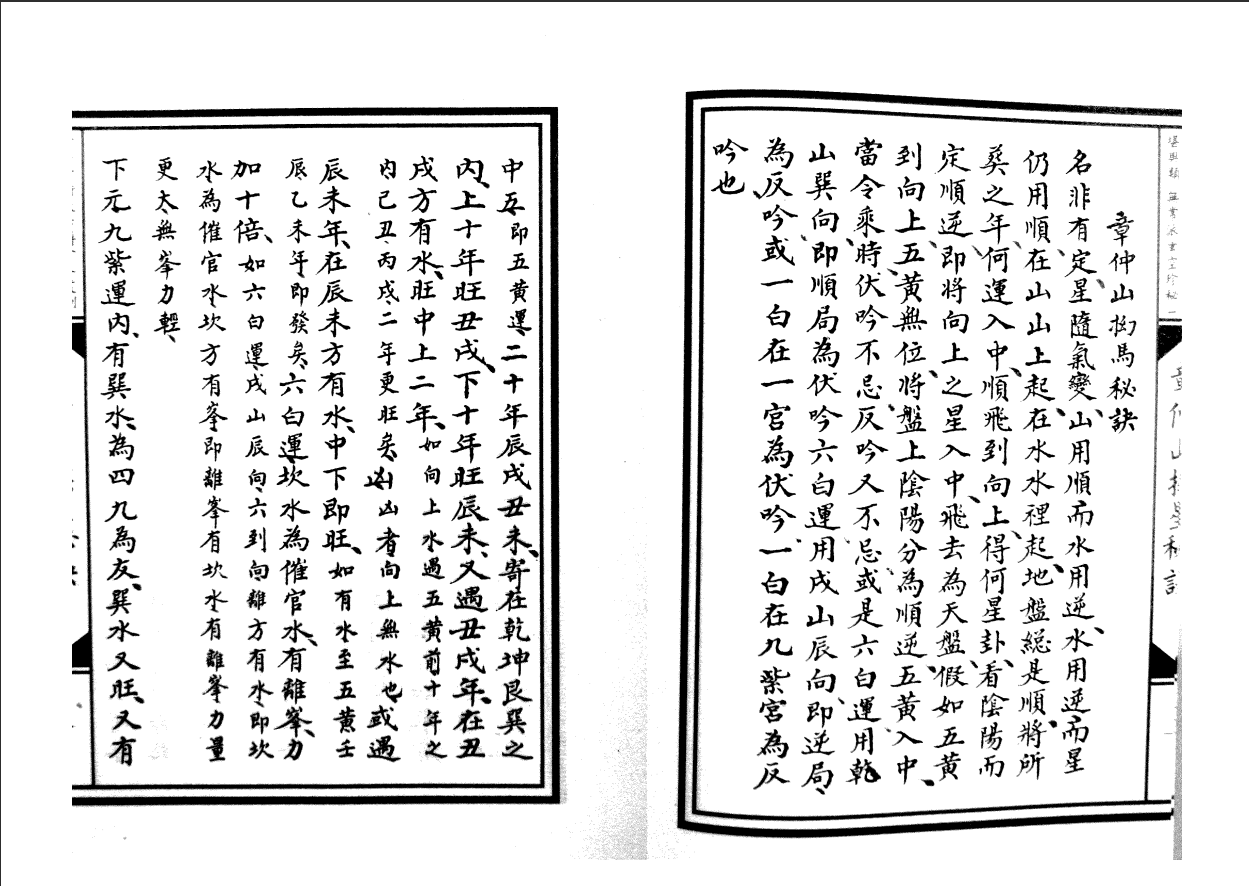 堪輿類
章仲山
章仲山㧕馬秘訣
名非有定、星隨氣變、山用順而水用逆、水用逆而星
仍用順、在山山上起、在水水裡起、地盤總是順、將所
葬之年、何運入中、順飛到向上、得何星卦、看陰陽而
定順逆、即將向上之星入中、飛去為天盤、假如五黄
到向上、五黄無位、將盤上陰陽、分為順逆、五黄入中、
當令乘時、伏吟不忌、反吟又不忌、或是六白運、用乾
山巽向、即順局為伏吟、六白運用戌山辰向、即逆局、
為反吟、或一白在一宮為伏吟、一白在九紫宮為反
吟也
中五、即五黄運、二十年辰戌丑未、寄在乾坤艮巽之
內、上十年旺丑戌、下十年旺辰未、又遇丑戌年、在丑
戌方有水、旺中上二年、如向上水遇五黄前十年之
內己丑、丙戌二年更旺矣、凶凶者向上無水也、或遇
辰未年、在辰未方有水、中下即旺、如有水至五黄壬
辰乙未年、即發矣、六白運、坎水為催官水、有離峯、力
加十倍、如六白運、戌山辰向、六到向離方有水、即坎
水為催官水、坎方有峯、即離峯有坎水、有離峯力量
更大、無峯力輕、
下元九紫運內、有巽水、為四九為友、巽水又旺、又有